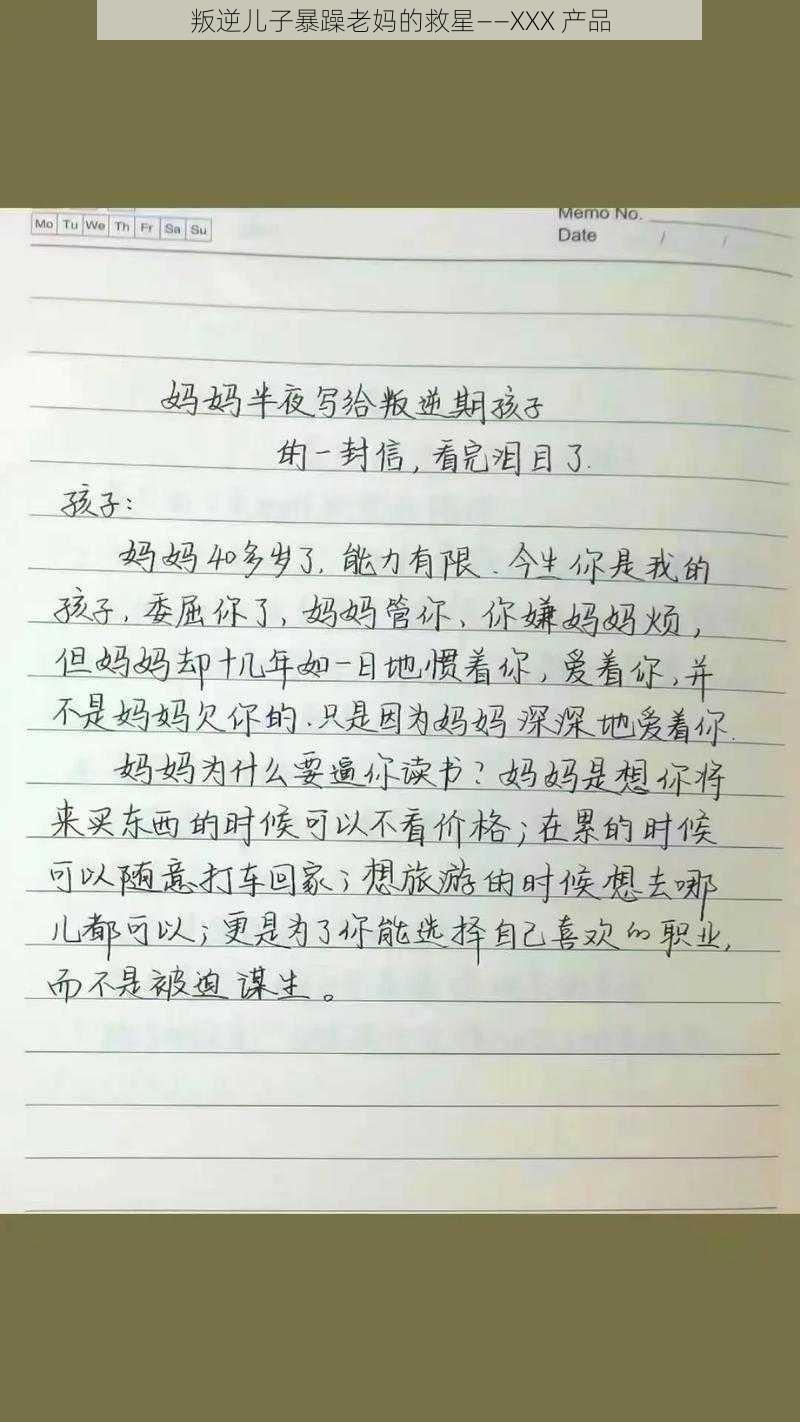 叛逆儿子暴躁老妈的救星——XXX 产品
Mo Tu We Th Fr Sa Su
Memo No.
Date / /
妈妈半夜写给叛逆期孩子
的一封信,看完泪目了.
孩子:
妈妈40多岁了,能力有限.今生你是我的
孩子,委屈你了,妈妈管你,你嫌妈妈烦,
但妈妈却十几年如一日地惯着你,爱着你,并
不是妈妈欠你的.只是因为妈妈深深地爱着你.
妈妈为什么要逼你读书?妈妈是想你将
来买东西的时候可以不看价格;在累的时候
可以随意打车回家;想旅游的时候想去哪
儿都可以;更是为了你能选择自己喜欢的职业,
而不是被迫谋生。